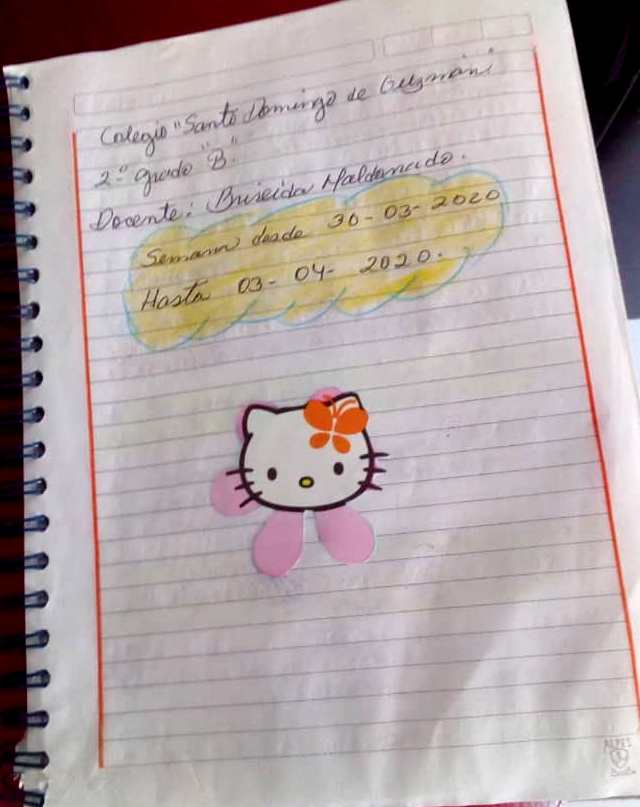 Colegio "Santo Domingo de Guzmán"
2.º grado "B".
Docente: Briseida Maldonado.
Semana desde 30-03-2020
Hasta 03-04-2020.